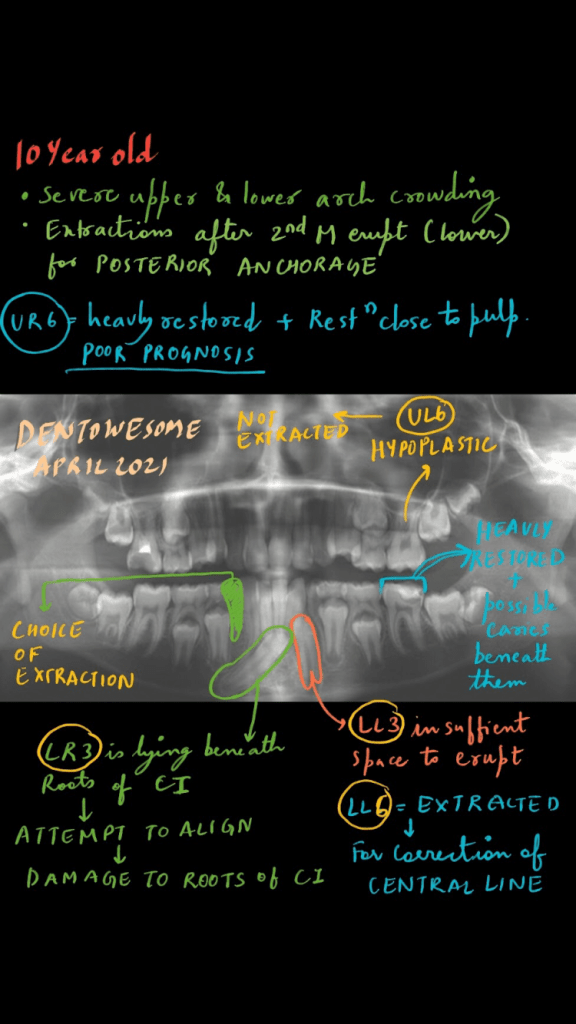 10 Year old
• Severe upper & lower arch crowding
• Extractions after 2nd M erupt (lower)
for POSTERIOR ANCHORAGE
UR6 = heavly restored + Restⁿ close to pulp.
POOR PROGNOSIS
DENTOWESOME
APRIL 2021
NOT
EXTRACTED
UL6
HYPOPLASTIC
HEAVLY
RESTORED
+
possible
caries
beneath
them
CHOICE
OF
EXTRACTION
LR3 is lying beneath
Roots of CI
↓
ATTEMPT TO ALIGN
↓
DAMAGE TO ROOTS of CI
LL3 insufficient
space to erupt
LL6 = EXTRACTED
↓
For Correction of
CENTRAL LINE